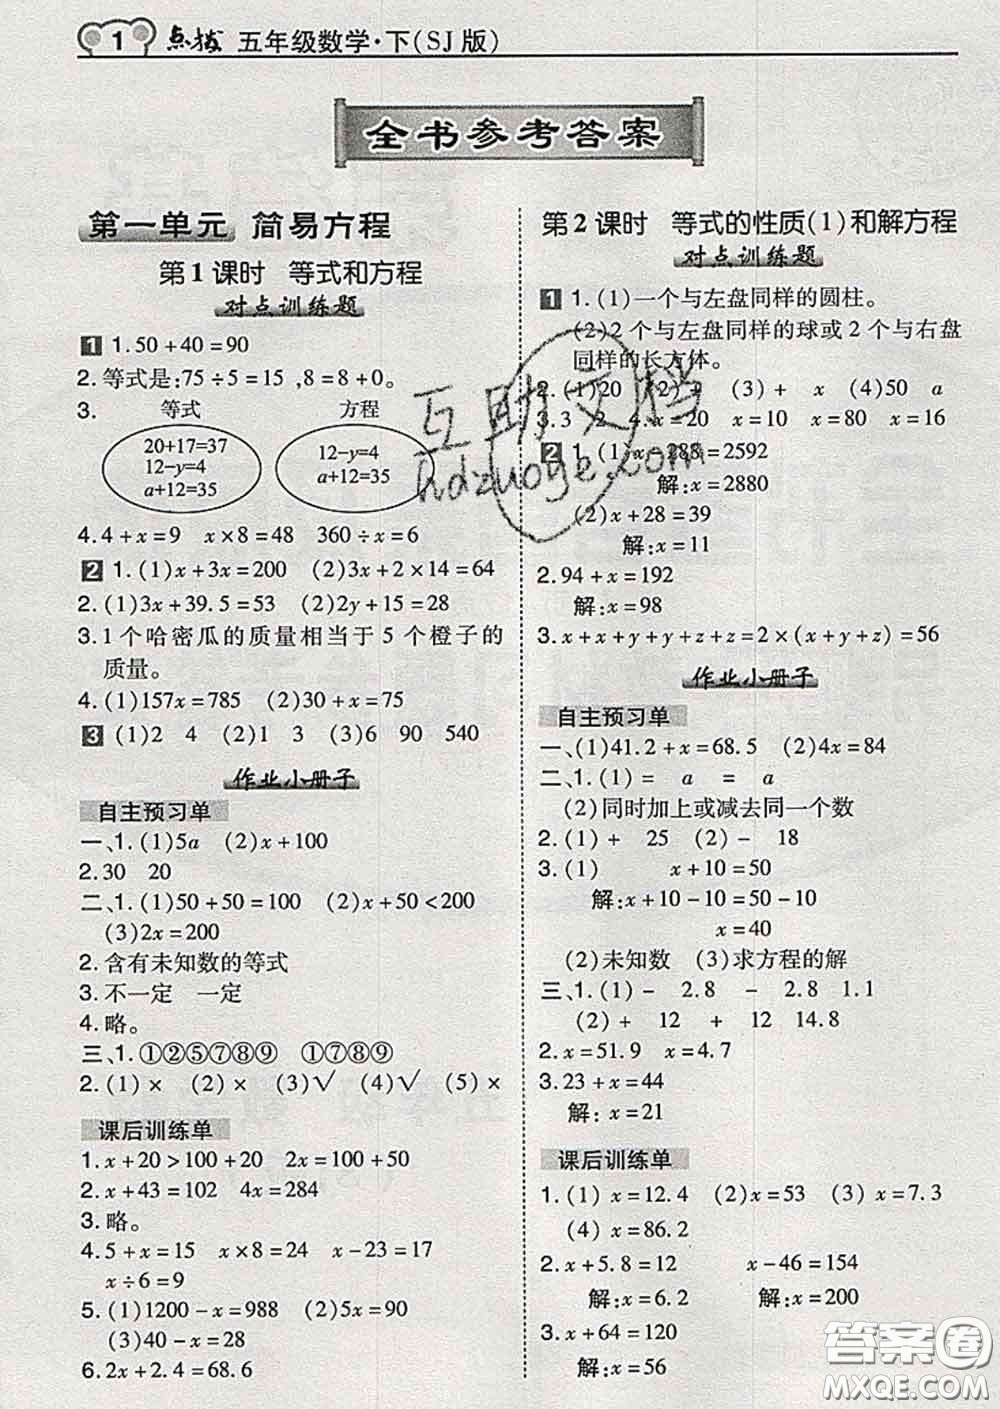 1 点拨 五年级数学·下(SJ版)
全书参考答案
第一单元 简易方程
第1课时 等式和方程
对点训练题
1 1.50+40=90
2.等式是:75÷5=15 ,8=8+0。
3. 等式 方程
20+17=37
12-y=4
a+12=35
12-y=4
a+12=35
4.4+x=9 x×8=48 360÷x=6
2 1.(1)x+3x=200 (2)3x+2×14=64
2.(1)3x+39.5=53 (2)2y+15=28
3.1个哈密瓜的质量相当于5个橙子的
质量。
4.(1)157x=785 (2)30+x=75
3 (1)2 4 (2)1 3 (3)6 90 540
作业小册子
自主预习单
一、1.(1)5a (2)x+100
2.30 20
二、1.(1)50+50=100 (2)x+50<200
(3)2x=200
2.含有未知数的等式
3.不一定 一定
4.略。
三、1.①②⑤⑦⑧⑨ ①⑦⑧⑨
2.(1)× (2)× (3)√ (4)√ (5)×
课后训练单
1.x+20>100+20 2x=50+50
2.x+43=102 4x=284
3.略。
4.5+x=15 x×8=24 x-23=17
x÷6=9
5.(1)1200-x=988 (2)5x=90
(3)40-x=28
6.2x+2.4=68.6
第2课时 等式的性质(1)和解方程
对点训练题
1 1.(1)一个与左盘同样的圆柱。
(2)2个与左盘同样的球或2个与右盘
同样的长方体。
2.(1)20 (2)+ (3)+ x (4)50 a
3.3 2 4.x=20 x=80 x=16
2 1.(1)x-288=2592
解:x=2880
(2)x+28=39
解:x=11
2.94+x=192
解:x=98
3.x+x+y+y+z+z=2×(x+y+z)=56
作业小册子
自主预习单
一、(1)41.2+x=68.5 (2)4x=84
二、1.(1)= a = a
(2)同时加上或减去同一个数
2.(1)+ 25 (2)- 18
3.(1) x+10=50
解:x+10-10=50-10
x=40
(2)未知数 (3)求方程的解
三、1.(1)- 2.8 - 2.8 1.1
(2)+ 12 + 12 14.8
2.x=51.9 x=4.7
3.23+x=44
解:x=21
课后训练单
1.(1) x=12.4 (2)x=53 (3) x=7.3
(4) x=86.2
2.x+5.8=12 x-46=154
解:x=6.2 解:x=200
3.x+64=120
解:x=56
互助文档
hdzuoye.com
答案圈
MXQE.COM